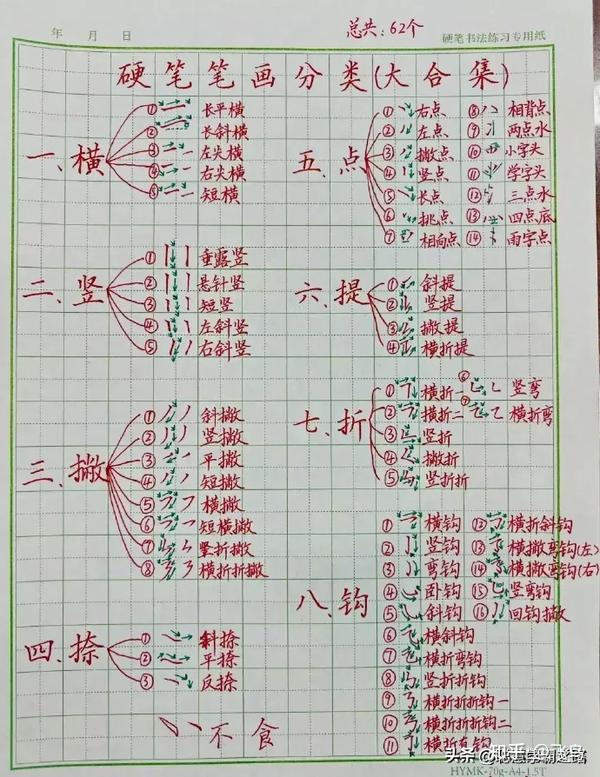 总共:62个
年 月 日
硬笔书法练习专用纸
硬笔笔画分类(大合集)
一、横
① 长平横
② 长斜横
③ 左尖横
④ 右尖横
⑤ 短横
二、竖
① 垂露竖
② 悬针竖
③ 短竖
④ 左斜竖
⑤ 右斜竖
三、撇
① 斜撇
② 竖撇
③ 平撇
④ 短撇
⑤ 横撇
⑥ 短横撇
⑦ 竖折撇
⑧ 横折折撇
四、捺
① 斜捺
② 平捺
③ 反捺
不食
五、点
① 右点
② 左点
③ 撇点
④ 竖点
⑤ 长点
⑥ 挑点
⑦ 相向点
⑧ 相背点
⑨ 两点水
⑩ 小字头
⑪ 学字头
⑫ 三点水
⑬ 四点底
⑭ 雨字点
六、提
① 斜提
② 竖提
③ 撇提
④ 横折提
七、折
① 横折一
② 横折二
③ 竖折
④ 撇折
⑤ 竖折折
⑥ 竖弯
⑦ 横折弯
八、钩
① 横钩
② 竖钩
③ 弯钩
④ 卧钩
⑤ 斜钩
⑥ 横斜钩
⑦ 横折弯钩
⑧ 竖折折钩
⑨ 横折折折钩一
⑩ 横折折折钩二
⑪ 横折
⑫ 横折斜钩
⑬ 横撇弯钩(左)
⑭ 横撇弯钩(右)
⑮ 竖弯钩
⑯ 回钩撇
知乎 @飞鸟
HYMK-70g-A4-1.5T